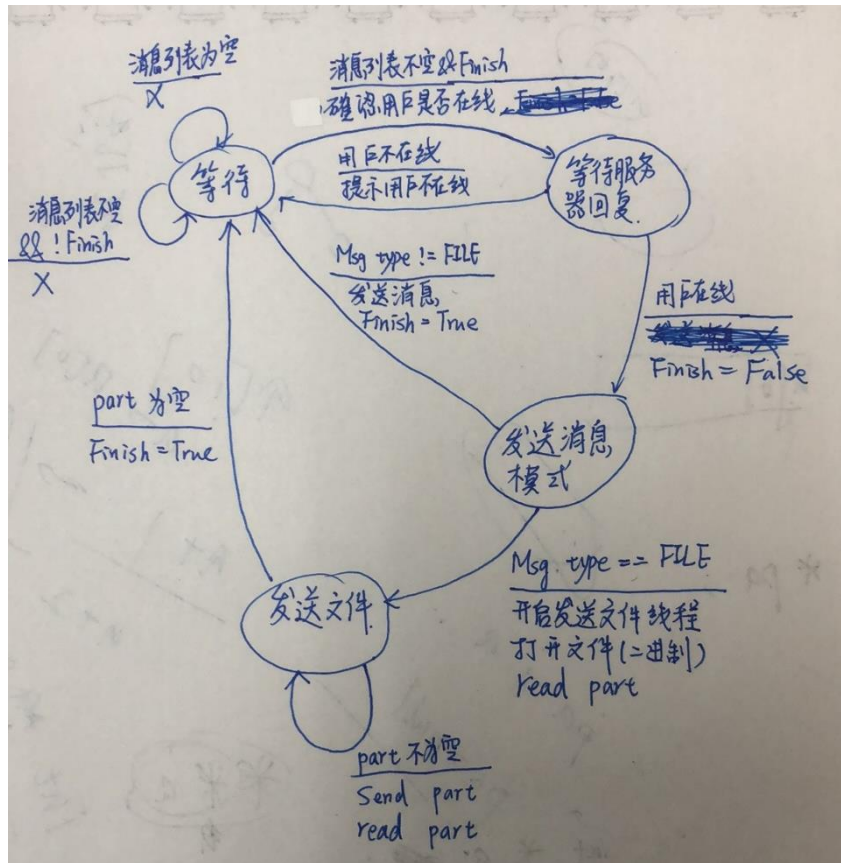 消息列表为空
X
消息列表不空&&Finish
确认用户是否在线
用户不在线
提示用户不在线
等待
等待服务
器回复
消息列表不空
&& !Finish
X
Msg type != FILE
发送消息
Finish = True
用户在线
Finish = False
part 为空
Finish = True
发送消息
模式
发送文件
Msg type == FILE
开启发送文件线程
打开文件(二进制)
read part
part 不为空
Send part
read part